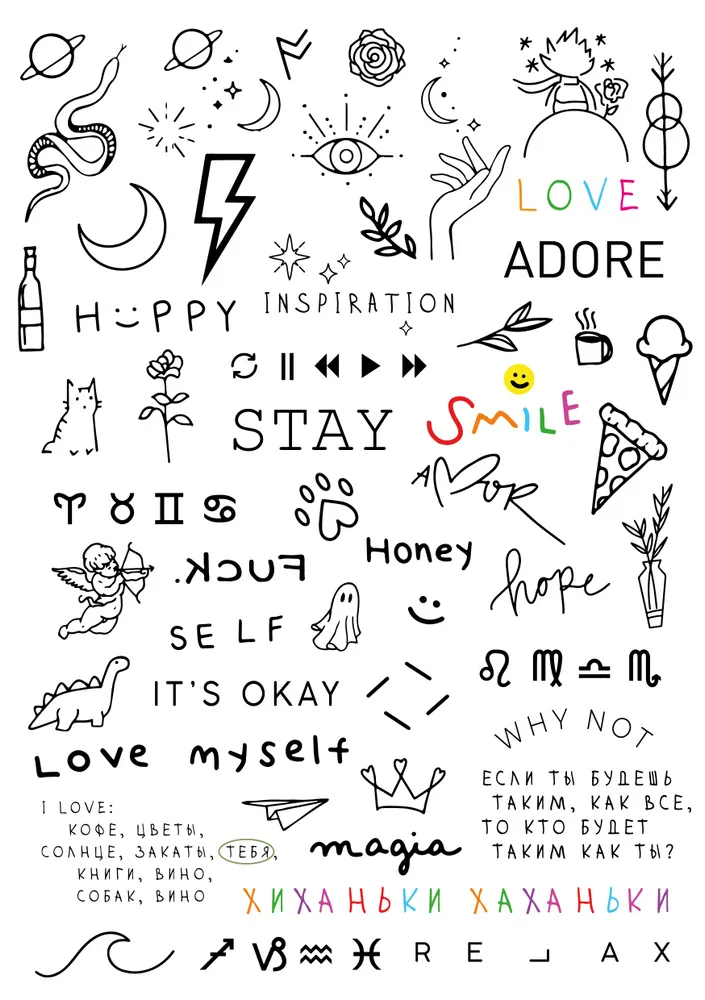 LOVE
ADORE
H☺PPY
INSPIRATION
STAY
SMILE
AMOR
Honey
FUCK.
hope
SELF
IT'S OKAY
WHY NOT
Love myself
ЕСЛИ ТЫ БУДЕШЬ
ТАКИМ, КАК ВСЕ,
ТО КТО БУДЕТ
ТАКИМ КАК ТЫ?
I LOVE:
КОФЕ, ЦВЕТЫ,
СОЛНЦЕ, ЗАКАТЫ, ТЕБЯ,
КНИГИ, ВИНО,
СОБАК, ВИНО
magia
ХИХАНЬКИ ХАХАНЬКИ
RELAX